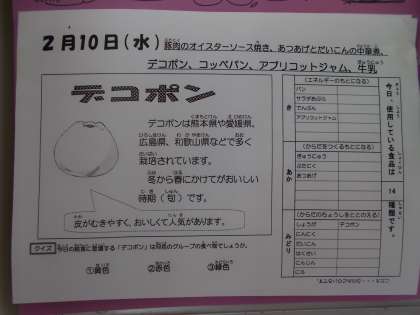 2月10日(水) 豚肉のオイスターソース焼き、あつあげとだいこんの中華煮、
デコポン、コッペパン、アプリコットジャム、牛乳
デコポン
デコポンは熊本県や愛媛県、
広島県、和歌山県などで多く
栽培されています。
冬から春にかけてがおいしい
時期(旬)です。
皮がむきやすく、おいしくて人気があります。
クイズ 今日の給食に登場する「デコポン」は何色のグループの食べ物でしょうか。
①黄色 ②赤色 ③緑色
今日、使用している食品は 14 種類です。
き
(エネルギーのもとになる)
パン
サラダあぶら
でんぷん
アプリコットジャム
あか
(からだをつくるもとになる)
ぎゅうにゅう
ぶたにく
あつあげ
みどり
(からだのちょうしをととのえる)
しょうが デコポン
にんにく
だいこん
はくさい
にんじん
にら